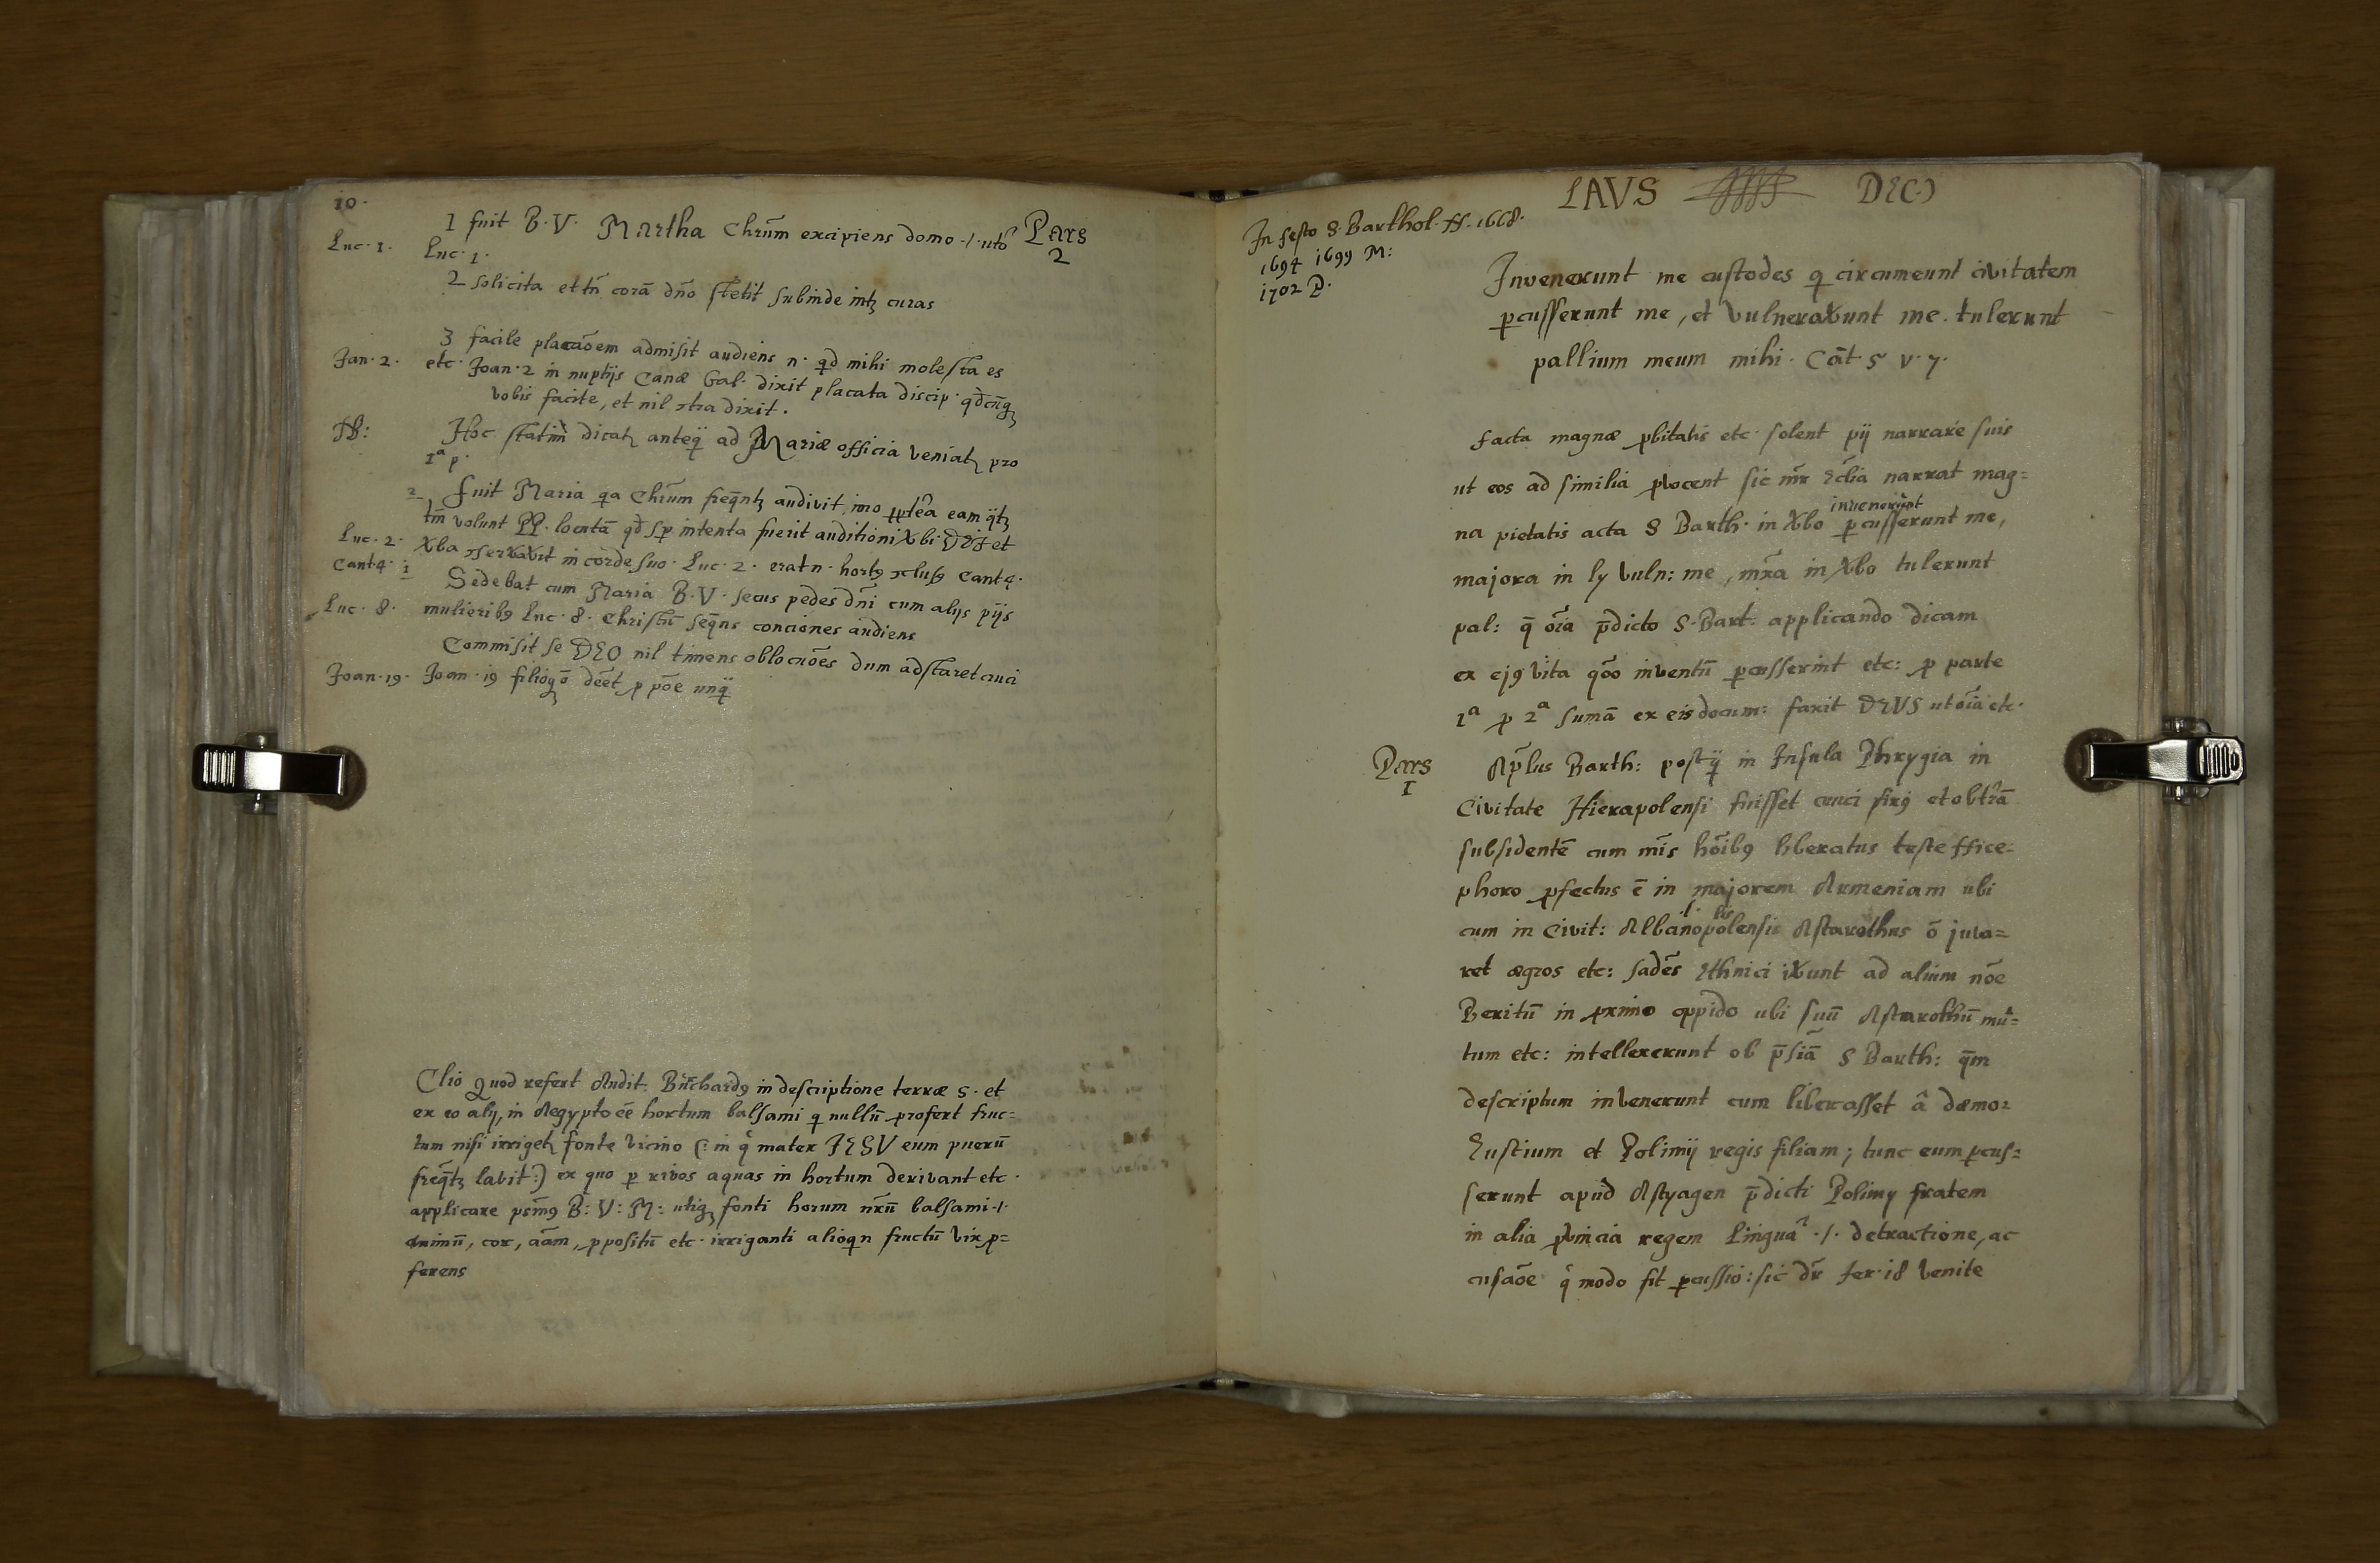 10.
1 fuit B. V. Martha Chrūm excipiens domo ·/· utō Pars
2
Luc. 1. Luc. 1.
2 solicita et tñ corā dño stetit subinde intꝫ curas
3 facile placāōem admisit audiens n. qd mihi molesta es
Jan. 2. etc. Joan. 2 in nuptijs Canæ Gal. dixit placata discip. qdcūqꝫ
vobis facite, et nil ɔtra dixit.
NB: Hoc statim dicatꝫ anteq̄ ad Mariæ officia veniatꝫ pro
1ª p.
2 Fuit Maria qa Chrūm freq̄ntꝫ audivit, imo ꝓptea eam
tm̄ volunt PP. locutā qđ sp intenta fuerit auditioni Xbi DEI et
Luc. 2. Xba ɔservavit in corde suo. Luc. 2. erat n. hortꝯ ɔclusꝯ Cant 4.
Cant 4. 1 Sedebat cum Maria B. V. secus pedes dñi cum alijs pijs
Luc. 8. mulieribꝯ Luc. 8. Christū seq̄ns conciones audiens
Commisit se DEO nil timens oblocuōes dum adstaret cruci
Joan. 19. Joan. 19 filioqꝫ ō deēt p pōe unq̄
Clio Quod refert Audit. Burchardꝯ in descriptione terræ S. et
ex eo alij, in Aegypto eē hortum balsami q nullū profert fruc=
tum nisi irrigetꝫ fonte vicino (: in q mater JESV eum puerū
freq̄tꝫ lavit :) ex quo p rivos aquas in hortum derivant etc.
applicare psm̄ꝯ B: V: M: utiqꝫ fonti horum nr̄ū balsami ·/·
animū, cor, aām, ꝓpositū etc. irriganti alioqn fructū vix ꝓ=
ferens
LAVS DEO
In festo S. Barthol. H. 1668.
1694 1699 M:
1702 P.
Invenerunt me custodes q circumeunt civitatem
pcusserunt me, et vulneraverunt me. tulerunt
pallium meum mihi. Cāt. 5 v. 7.
Facta magnæ ꝓbitatis etc. solent pij narrare suis
ut eos ad similia ꝓvocent sic mr̄ Ecl̄ia narrat mag=
invenerunt
na pietatis acta S Barth. in Xbo pcusserunt me,
majora in ly vuln: me, mr̄a in Xbo tulerunt
pal: q̄ oīa p̄dicto S. Bart: applicando dicam
ex ejꝯ vita qōo inventū pcusserint etc: p parte
1ª p 2ª sumā ex eis docum: faxit DEVS ut oīa etc.
Pars
1
Ap̄lus Barth: postq̄ in Insula Phrygia in
Civitate Hierapolensi fuisset cruci fixꝯ et ob tr̄ā
subsidentē cum mīs hōibꝯ liberatus teste Nice=
phoro ꝓfectus ē in majorem Armeniam ubi
·/· lis
cum in civit: Albanopolensis Astarothus ō juva=
ret ægros etc: sadēs Ethnici iverunt ad alium nōe
Beritū in ꝓximo oppido ubi suū Astarothū mu=
tum etc: intellexerunt ob p̄siā S Barth: q̄m
descriptum invenerunt cum liberasset â dæmo=
Eustium et Polimij regis filiam; tunc eum pcus=
serunt apud Astyagen p̄dicti Polimy fratem
in alia ꝓvincia regem linguâ ·/· detractione, ac
cusaōe q modo fit pcussio: sic dr̄ Jer. 18 Venite